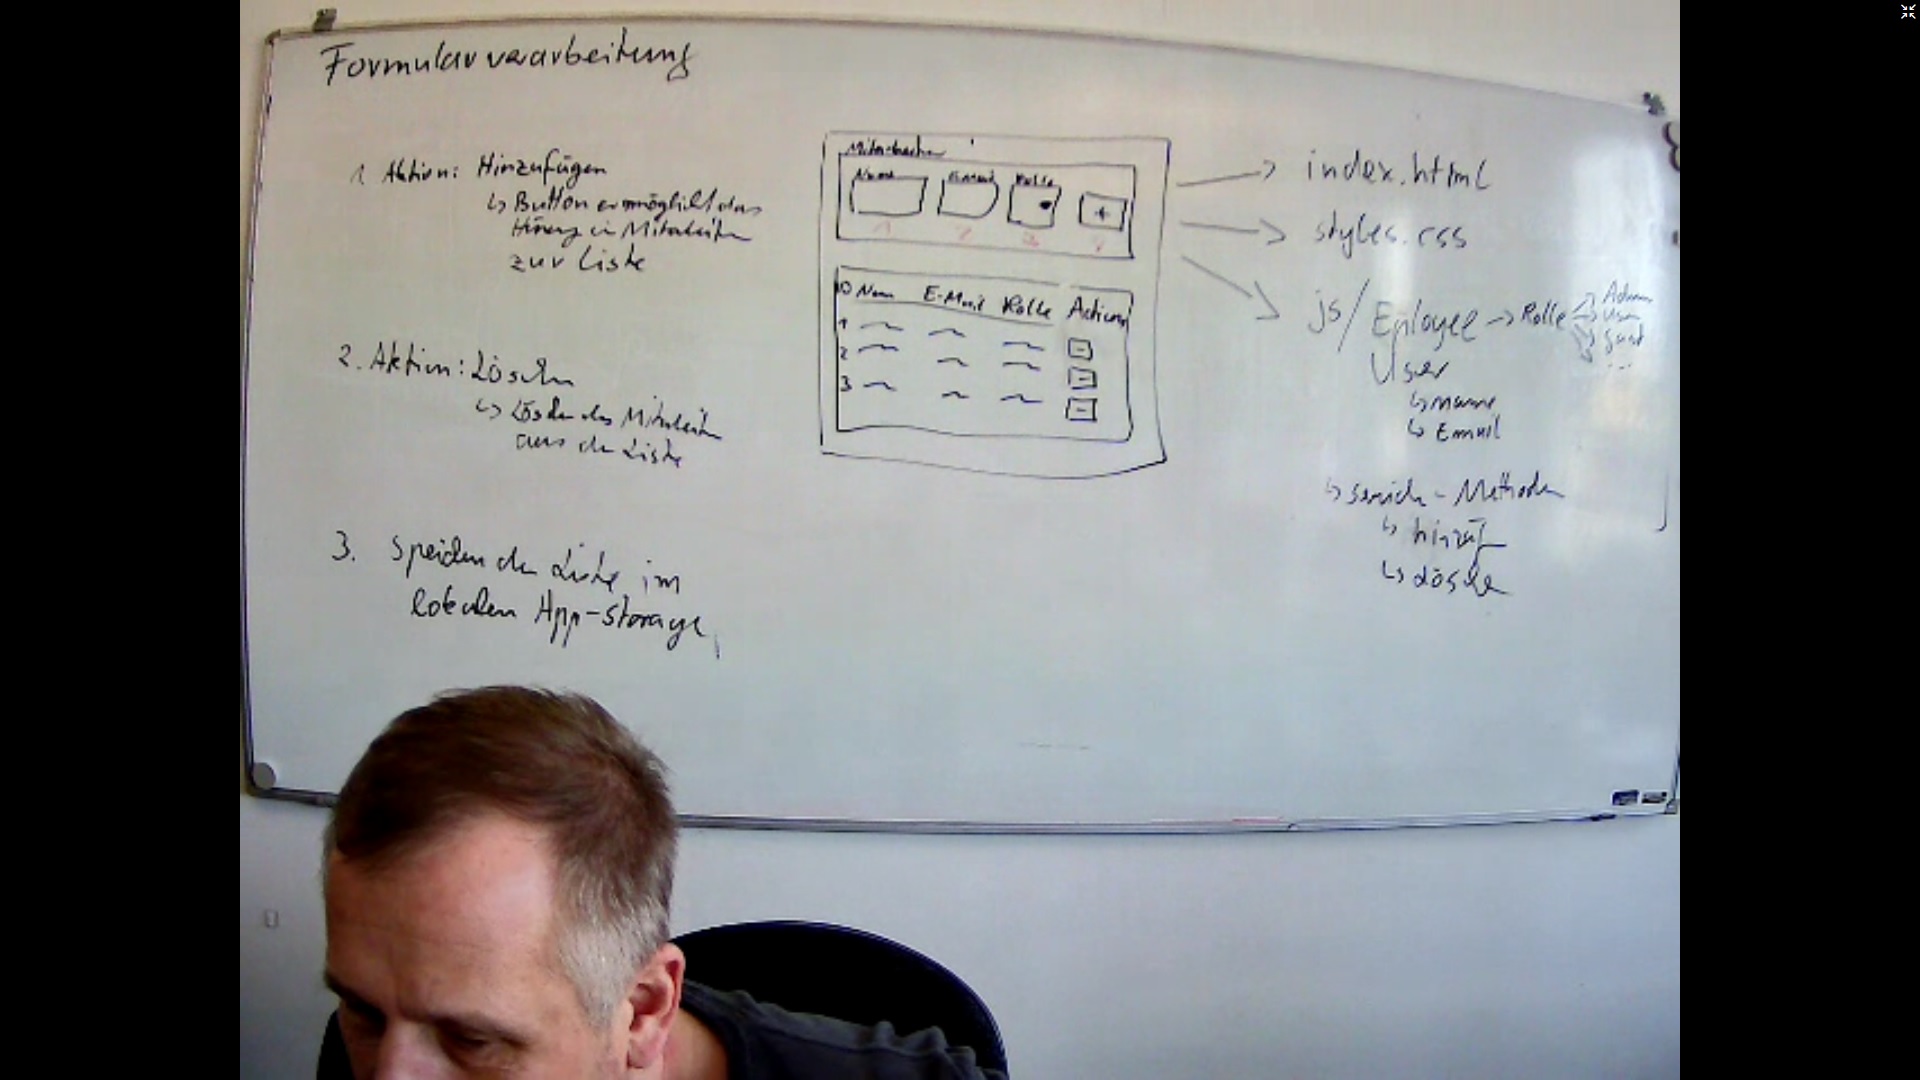 Formularverarbeitung
1. Aktion: Hinzufügen
↳ Button ermöglicht das
Mitarbeiter
zur Liste
2. Aktion: Löschen
↳ Löschen des Mitarbeiter
aus der Liste
3. Speichern der Liste im
lokalen App-Storage
Mitarbeiter
Name E-Mail Rolle
+
1 2 3 4
ID Name E-Mail Rolle Actions
1 -
2 -
3 -
→ index.html
→ styles.css
→ js/Eployee → Rolle
Admin
User
Gast
...
User
↳ name
↳ Email
↳ - Methoden
↳ hinzuf
↳ Löschen